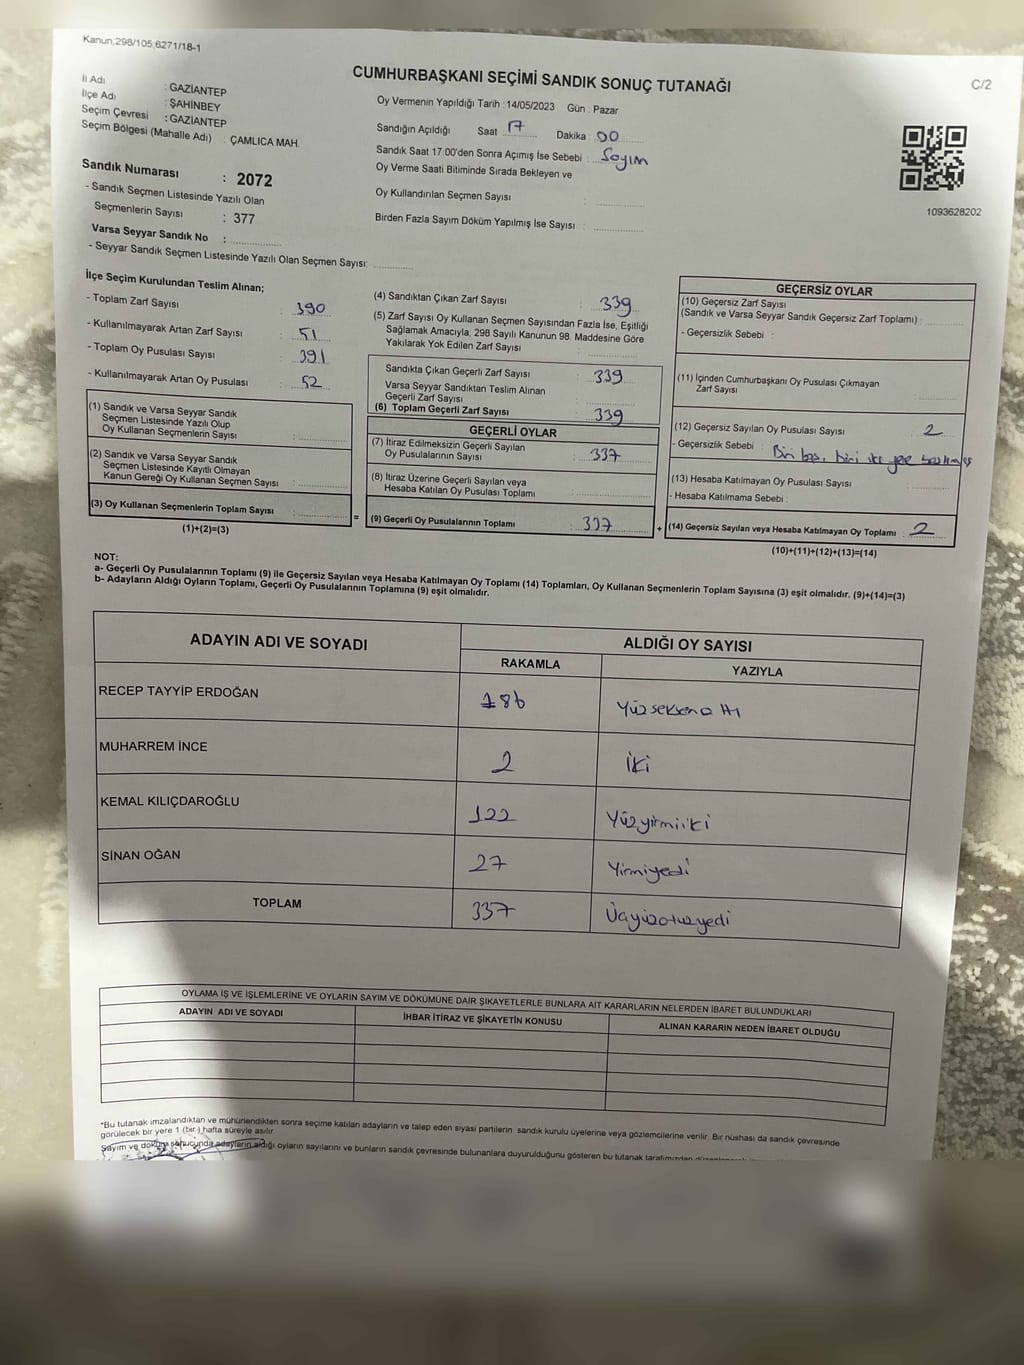 Kanun;298/105;6271/18-1
C/2
CUMHURBAŞKANI SEÇİMİ SANDIK SONUÇ TUTANAĞI
İl Adı : GAZİANTEP
İlçe Adı : ŞAHİNBEY
Seçim Çevresi : GAZİANTEP
Seçim Bölgesi (Mahalle Adı) : ÇAMLICA MAH.
Sandık Numarası : 2072
- Sandık Seçmen Listesinde Yazılı Olan
Seçmenlerin Sayısı : 377
Varsa Seyyar Sandık No :
- Seyyar Sandık Seçmen Listesinde Yazılı Olan Seçmen Sayısı:
Oy Vermenin Yapıldığı Tarih : 14/05/2023 Gün : Pazar
Sandığın Açıldığı Saat 17 Dakika 00
Sandık Saat 17:00'den Sonra Açımış İse Sebebi : Sayım
Oy Verme Saati Bitiminde Sırada Bekleyen ve
Oy Kullandırılan Seçmen Sayısı :
Birden Fazla Sayım Döküm Yapılmış İse Sayısı :
1093628202
İlçe Seçim Kurulundan Teslim Alınan;
- Toplam Zarf Sayısı : 390
- Kullanılmayarak Artan Zarf Sayısı : 51
- Toplam Oy Pusulası Sayısı : 391
- Kullanılmayarak Artan Oy Pusulası : 52
(1) Sandık ve Varsa Seyyar Sandık
Seçmen Listesinde Yazılı Olup
Oy Kullanan Seçmenlerin Sayısı :
(2) Sandık ve Varsa Seyyar Sandık
Seçmen Listesinde Kayıtlı Olmayan
Kanun Gereği Oy Kullanan Seçmen Sayısı :
(3) Oy Kullanan Seçmenlerin Toplam Sayısı :
(1)+(2)=(3)
(4) Sandıktan Çıkan Zarf Sayısı : 339
(5) Zarf Sayısı Oy Kullanan Seçmen Sayısından Fazla İse, Eşitliği
Sağlamak Amacıyla, 298 Sayılı Kanunun 98. Maddesine Göre
Yakılarak Yok Edilen Zarf Sayısı :
Sandıkta Çıkan Geçerli Zarf Sayısı : 339
Varsa Seyyar Sandıktan Teslim Alınan
Geçerli Zarf Sayısı :
(6) Toplam Geçerli Zarf Sayısı : 339
=
GEÇERLİ OYLAR
(7) İtiraz Edilmeksizin Geçerli Sayılan
Oy Pusulalarının Sayısı : 337
(8) İtiraz Üzerine Geçerli Sayılan veya
Hesaba Katılan Oy Pusulası Toplamı :
(9) Geçerli Oy Pusulalarının Toplamı : 337
+
GEÇERSİZ OYLAR
(10) Geçersiz Zarf Sayısı
(Sandık ve Varsa Seyyar Sandık Geçersiz Zarf Toplamı) :
- Geçersizlik Sebebi :
(11) İçinden Cumhurbaşkanı Oy Pusulası Çıkmayan
Zarf Sayısı :
(12) Geçersiz Sayılan Oy Pusulası Sayısı : 2
- Geçersizlik Sebebi : Biri boş, biri iki yere basılmış
(13) Hesaba Katılmayan Oy Pusulası Sayısı :
- Hesaba Katılmama Sebebi :
(14) Geçersiz Sayılan veya Hesaba Katılmayan Oy Toplamı : 2
(10)+(11)+(12)+(13)=(14)
NOT:
a- Geçerli Oy Pusulalarının Toplamı (9) ile Geçersiz Sayılan veya Hesaba Katılmayan Oy Toplamı (14) Toplamları, Oy Kullanan Seçmenlerin Toplam Sayısına (3) eşit olmalıdır. (9)+(14)=(3)
b- Adayların Aldığı Oyların Toplamı, Geçerli Oy Pusulalarının Toplamına (9) eşit olmalıdır.
ADAYIN ADI VE SOYADI
ALDIĞI OY SAYISI
RAKAMLA YAZIYLA
RECEP TAYYİP ERDOĞAN 186 Yüzseksenaltı
MUHARREM İNCE 2 İki
KEMAL KILIÇDAROĞLU 122 Yüzyirmiiki
SİNAN OĞAN 27 Yirmiyedi
TOPLAM 337 Üçyüzotuzyedi
OYLAMA İŞ VE İŞLEMLERİNE VE OYLARIN SAYIM VE DÖKÜMÜNE DAİR ŞİKAYETLERLE BUNLARA AİT KARARLARIN NELERDEN İBARET BULUNDUKLARI
ADAYIN ADI VE SOYADI İHBAR İTİRAZ VE ŞİKAYETİN KONUSU ALINAN KARARIN NEDEN İBARET OLDUĞU
*Bu tutanak imzalandıktan ve mühürlendikten sonra seçime katılan adayların ve talep eden siyasi partilerin sandık kurulu üyelerine veya gözlemcilerine verilir. Bir nüshası da sandık çevresinde
görülecek bir yere 1 (bir ) hafta süreyle asılır.
Sayım ve döküm sonucunda adayların aldığı oyların sayılarını ve bunların sandık çevresinde bulunanlara duyurulduğunu gösteren bu tutanak tarafımızdan